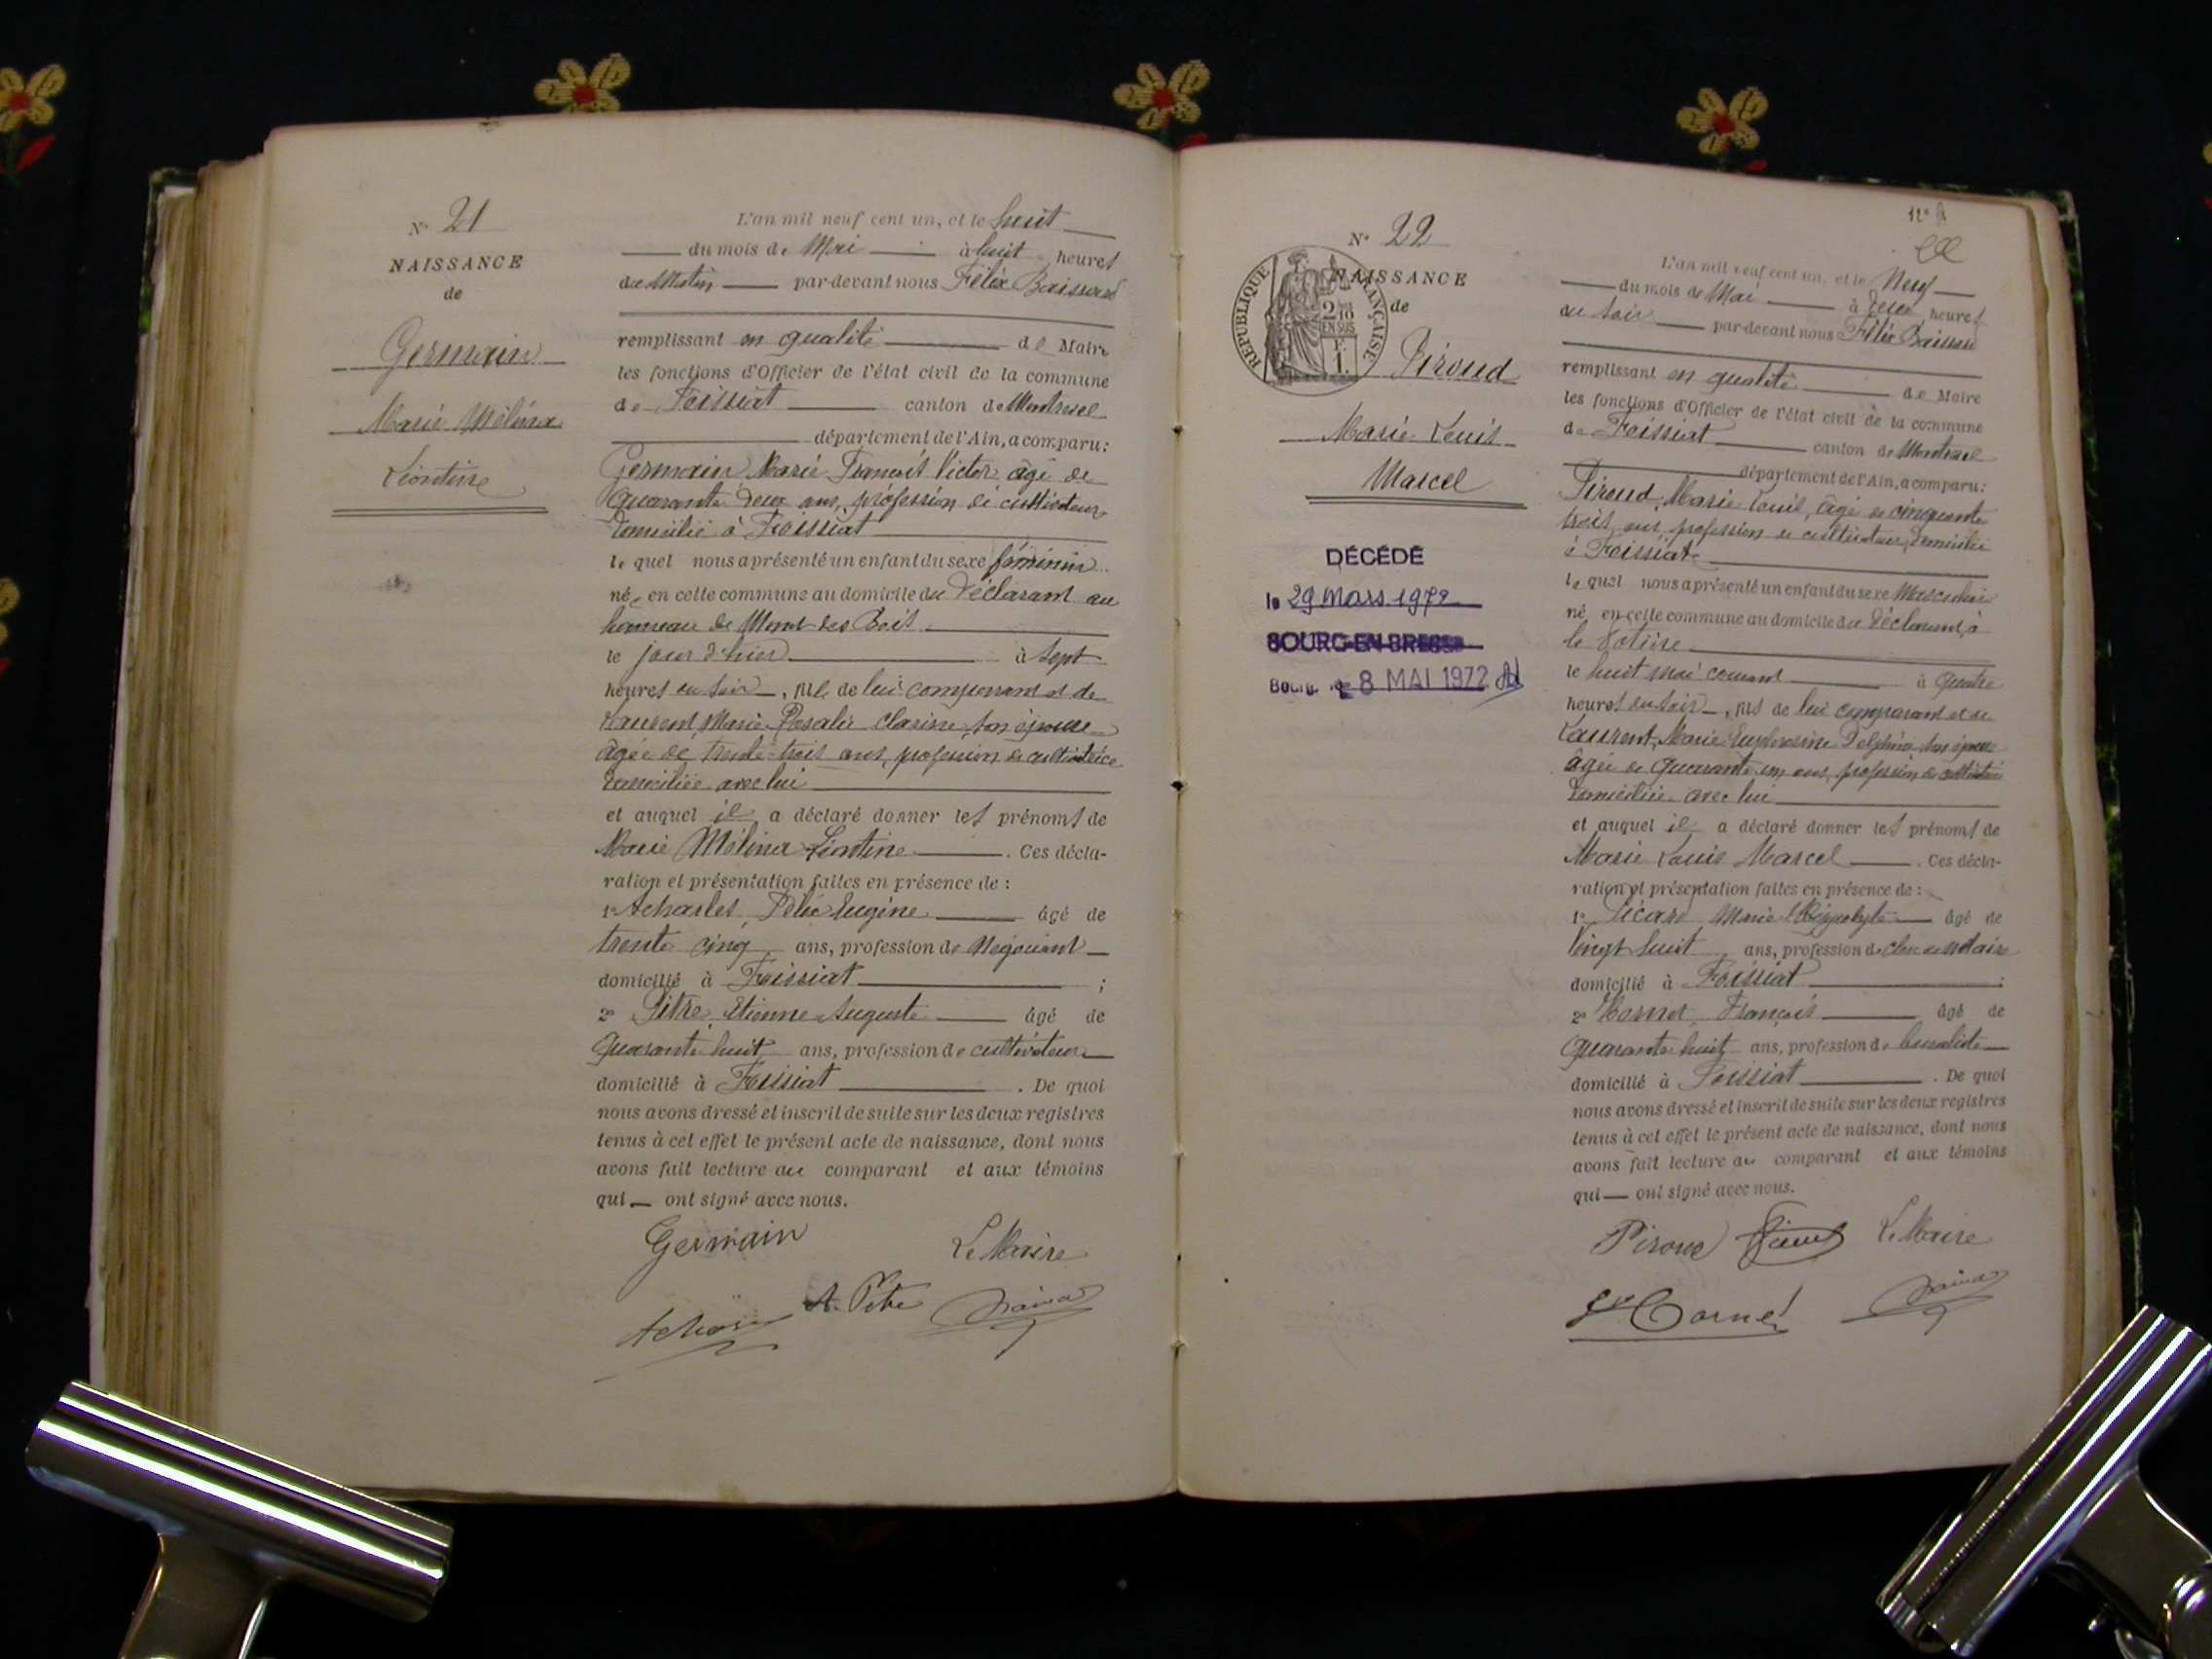 N° 21
NAISSANCE
de
Germain
Marie Mélina
Léontine
L'an mil neuf cent un, et le huit
du mois de Mai à huit heures
du Matin par-devant nous Félix
remplissant en qualité de Maire
les fonctions d'Officier de l'état civil de la commune
de Foissiat canton de Montrevel
département de l'Ain, a comparu:
Germain Marie François Victor âgé de
Quarante deux ans, profession de cultivateur
domicilié à Foissiat
le quel nous a présenté un enfant du sexe féminin
né, en cette commune au domicile du déclarant au
hameau de Mont des Bois
le jour d'hier à Sept
heures du soir, fille de lui comparant et de
Laurent, Marie Rosalie Clarisse son épouse
âgée de trente-trois ans, profession de cultivatrice
domiciliée avec lui
et auquel il a déclaré donner les prénoms de
Marie Mélina Léontine. Ces décla-
ration et présentation faites en présence de :
1° Acharles, Félix Eugène âgé de
trente cinq ans, profession de Négociant
domicilié à Foissiat ;
2° Pitre, Etienne Auguste âgé de
Quarante huit ans, profession de cultivateur
domicilié à Foissiat. De quoi
nous avons dressé et inscrit de suite sur les deux registres
tenus à cet effet le présent acte de naissance, dont nous
avons fait lecture au comparant et aux témoins
qui ont signé avec nous.
Germain Le Maire
A. Pitre
N° 22
NAISSANCE
de
REPUBLIQUE FRANÇAISE
2/10 EN SUS
F. 1.
Piroud
Marie Louis
Marcel
DÉCÉDÉ
le 29 mars 1972
BOURG-EN-BRESSE
Bourg, le 8 MAI 1972
12e
L'an mil neuf cent un, et le Neuf
du mois de Mai à deux heures
du soir par-devant nous Félix
remplissant en qualité de Maire
les fonctions d'Officier de l'état civil de la commune
de Foissiat canton de Montrevel
département de l'Ain, a comparu:
Piroud, Marie Louis, âgé de cinquante
trois ans, profession de cultivateur, domicilié
à Foissiat
le quel nous a présenté un enfant du sexe Masculin
né en cette commune au domicile du déclarant, à
le huit mai courant à Quatre
heures du soir, fils de lui comparant et de
Laurent, Marie Euphrosine Delphine son épouse
âgée de Quarante un ans, profession de cultivatrice
domiciliée avec lui
et auquel il a déclaré donner les prénoms de
Marie Louis Marcel. Ces décla-
ration et présentation faites en présence de :
1° Marie Hippolyte âgé de
Vingt huit ans, profession de clerc de notaire
domicilié à Foissiat ;
2° François âgé de
Quarante huit ans, profession de buraliste
domicilié à Foissiat. De quoi
nous avons dressé et inscrit de suite sur les deux registres
tenus à cet effet le présent acte de naissance, dont nous
avons fait lecture au comparant et aux témoins
qui ont signé avec nous.
Piroud Le Maire